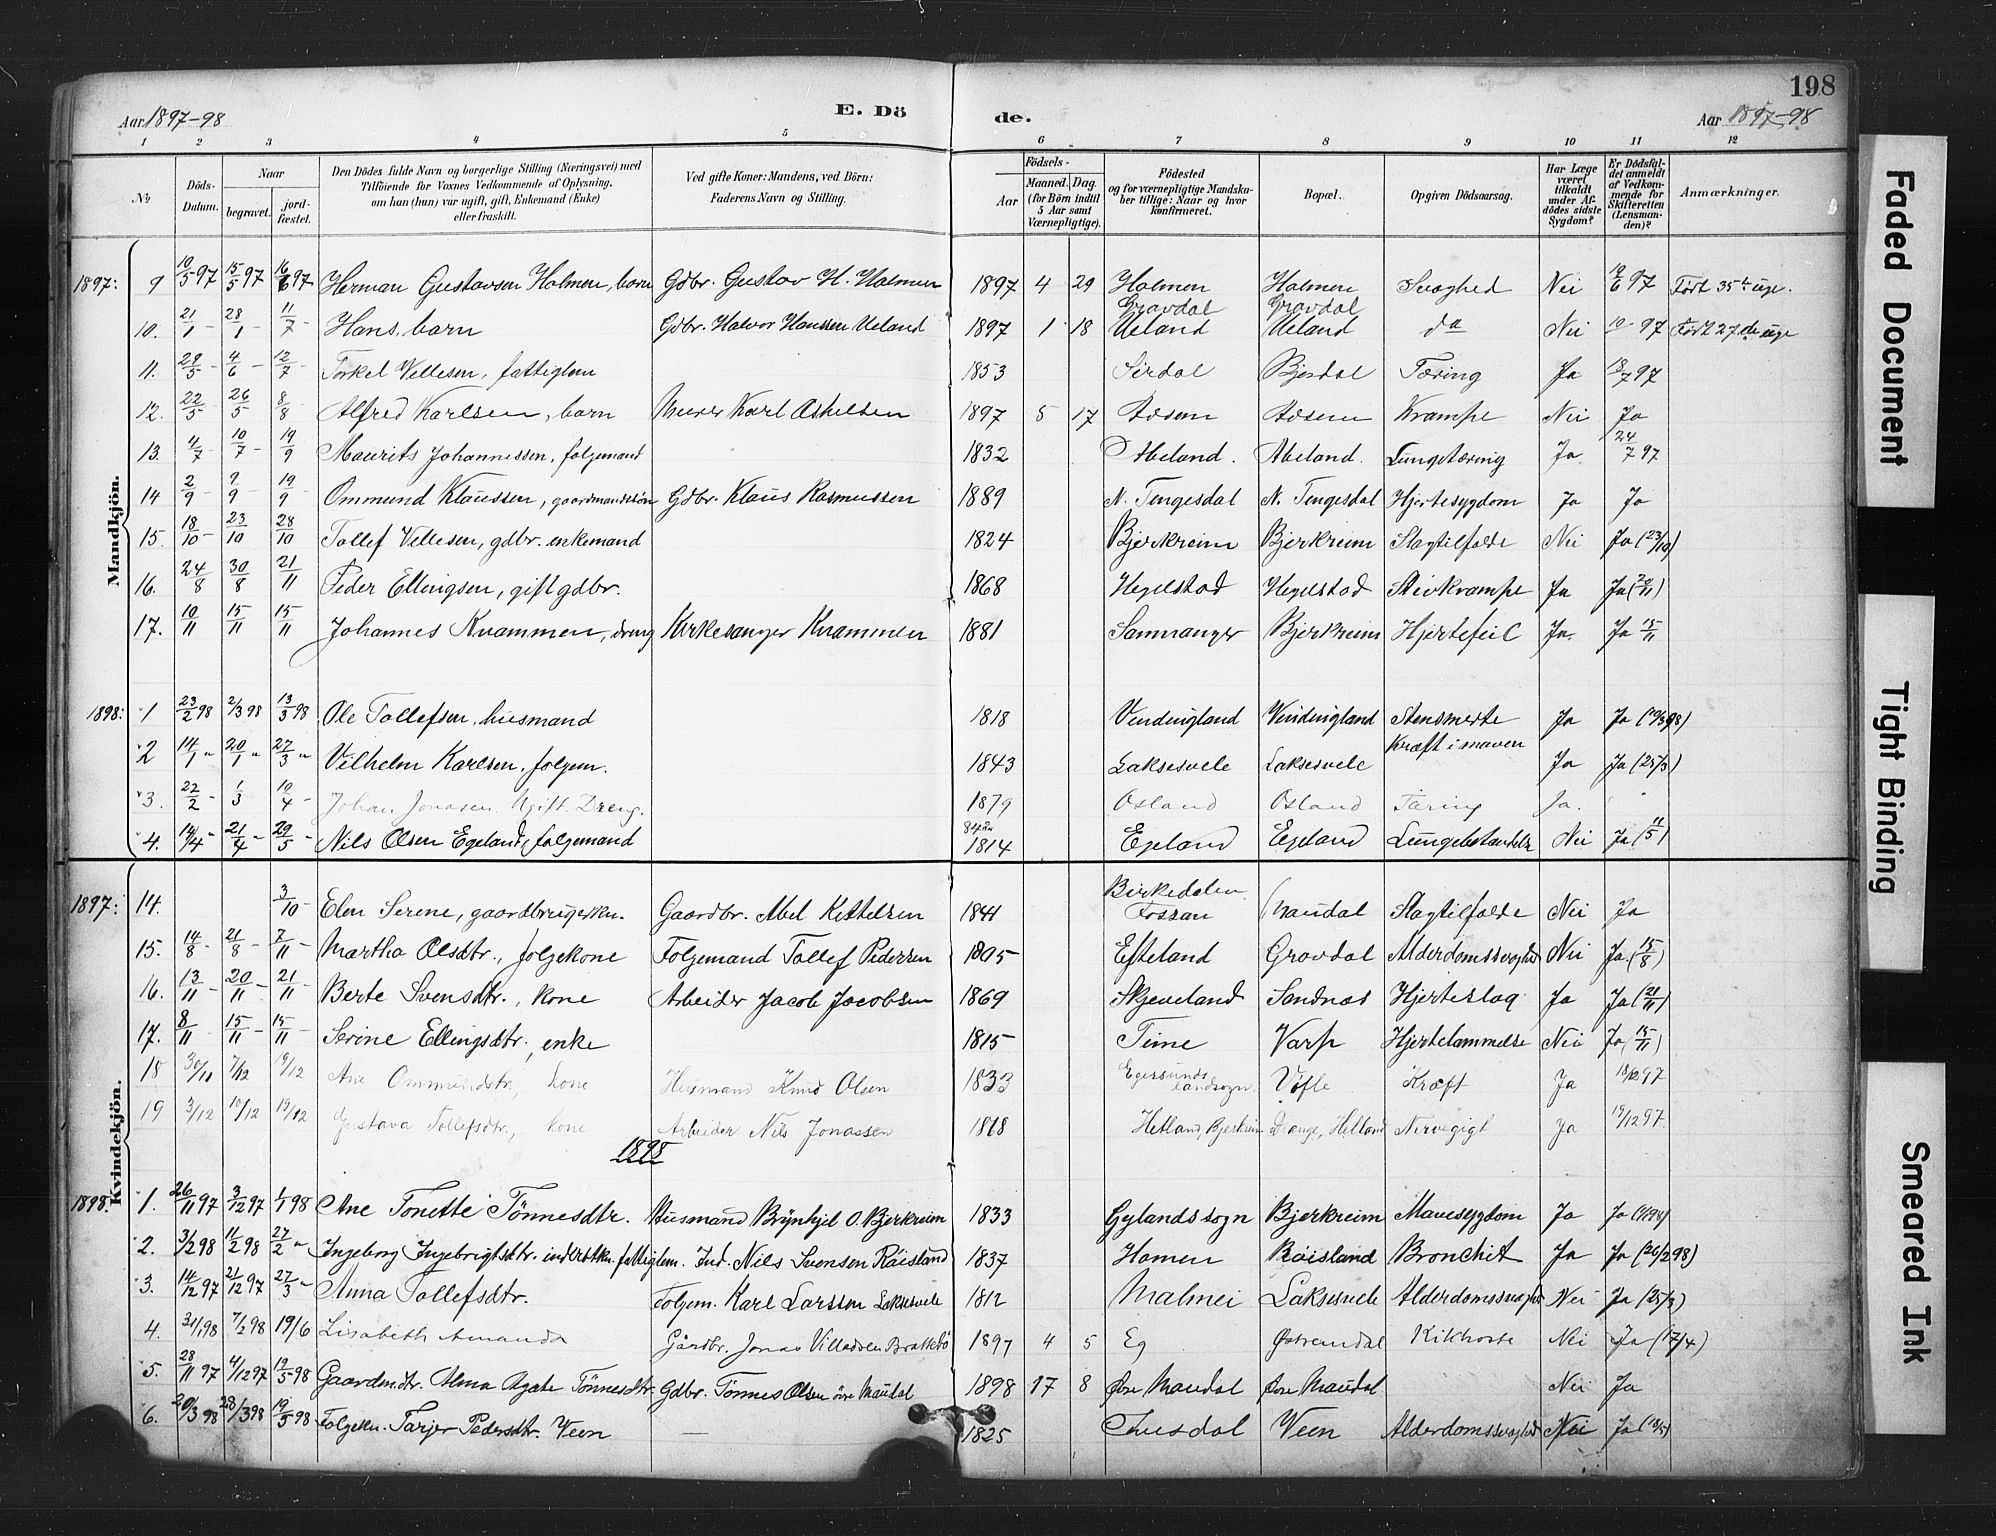 198
Aar 1897-98 E. Dö de. Aar 1897-98
1 2 3 4 5 6 7 8 9 10 11 12
No Döds-Datum. Naar begravet. jord-fæstet. Den Dödes fulde Navn og borgerlige Stilling (Næringsvei) med Tilföiende for Voxnes Vedkommende af Oplysning, om han (hun) var ugift, gift, Enkemand (Enke) eller fraskilt. Ved gifte Koner: Mandens, ved Börn: Faderens Navn og Stilling. Födsels- Aar Maaned. Dag. (for Börn indtil 5 Aar samt Værnepligtige). Födested og for værnepligtige Mandskaber tillige: Naar og hvor konfirmeret. Bopæl. Opgiven Dödsaarsag. Har Læge været tilkaldt under Afdödes sidste Sygdom? Er Dödsfaldet anmeldt af Vedkommende for Skifteretten (Lensmanden)? Anmærkninger.
Mandkjön.
1897: 9 10/5 97 15/5 97 16/6 97 Herman Gustavsen Holmen, barn Gdbr. Gustav H. Holmen 1897 4 29 Holmen Gravdal Holmen Gravdal Svaghed Nei 12/6 97 Født 35te uge.
10. 21/1 - 28/1 - 11/7 - Hans, barn Gdbr. Halvor Hanssen Ueland 1897 1 18 Ueland Ueland do Nei 10/ 97 Født 27de uge
11. 29/5 - 4/6 - 12/7 - Torkel Villesen, fattiglem 1853 Sirdal Bjordal Tæring Ja 18/7 97
12. 22/5 - 26/5 8/8 Alfred Karlsen, barn Murer Karl Askelsen 1897 5 17 Aasen Aasen Krampe Nei Ja
13. 4/7 10/7 - 19/9 Maurits Johannessen, folgemand 1832 Abeland. Abeland. Lungetæring Ja 24/7 97
14 2/9 - 9/9 - 19/9 - Ommund Klaussen, gaardmandssøn Gdbr. Klaus Rasmussen 1889 N. Tengesdal N. Tengesdal Hjertesygdom Ja Ja
15. 18/10 - 23/10 28/10 Tollef Villesen, gdbr. enkemand 1824 Bjerkreim Bjerkreim Slagtilfælde Nei Ja (23/10)
16. 24/8 30/8 21/11 Peder Ellingsen, gift gdbr. 1868 Hegelstad Hegelstad Stivkrampe Ja Ja (20/11)
17. 10/11 15/11 15/11 Johannes Kvammen, dreng Kirkesanger Kvammen 1881 Samnanger Bjerkreim Hjertefeil Ja. Ja 15/11
1898: 1 23/2 98 2/3 98 13/3 98 Ole Tollefsen, husmand 1818 Vindingland Vindingland Stensmerte Ja Ja (10/3 98)
2 14/1 " 20/1 " 27/3 " Vilhelm Karlsen, folgem. 1843 Laksesvele Laksesvele Kræft i maven Ja Ja (25/3)
3. 22/2 - 1/3 10/4 - Johan Jonasen. Ugift. Dreng. 1879 Osland Osland Tæring Ja. "
4. 14/4 - 21/4 - 29/5 - Nils Olsen Egeland, folgemand 84 år 1814 Egeland Egeland Lungebetændelse Nei Ja (11/5)
Kvindekjön.
1897: 14. 3/10 - Elen Serene, gaardbrugerkn. Gaardbr. Abel Kittelsen 1841 Birkedalen Fossan Maudal Slagtilfælde Nei Ja
15. 14/8 - 21/8 - 7/11 - Martha Olsdtr., folgekone Folgemand Tollef Pedersen 1805 Efteland Gravdal Alderdomssvaghed Nei Ja. (15/8)
16. 13/11 - 20/11 - 21/11 - Berte Svensdtr., kone Arbeider Jacob Jacobsen 1869 Skjeveland Sandnæs Hjerteslag Ja Ja (21/11)
17. 8/11 - 15/11 - 15/11 - Serine Ellingsdtr., enke 1815 Time Varp Hjertelammelse Nei Ja (15/11)
18 30/11 7/12 19/12 Ane Ommundsdtr., kone Husmand Knud Olsen 1833 Egersunds landsogn Vøfle Kræft Ja 18/12 97
19 3/12 10/12 19/12 Gustava Tollefsdtr., kone Arbeider Nils Jonassen 1818 Hetland, Bjerkreim Drange, Helland Nervegigt Ja 19/12 97.
1898
1898. 1. 26/11 97 3/12 97 1/1 98 Ane Tonette Tönnesdtr. Husmand Brynhjel O. Bjerkreim 1833 Gylands sogn Bjerkreim Mavesygdom Ja
2. 3/2 98 11/2 98 27/2 " Ingeborg Ingebrigtsdtr. fattiglem. Ind. Nils Svensen Röisland 1837 Homen Röisland Bronchit Ja Ja (26/2 98)
3. 14/12 97 21/12 97 27/3 " Anna Tollefsdtr. Folgem. Karl Larssen Laksesvele 1812 Malmei Laksesvele Alderdomssvaghed Nei Ja (25/3)
4. 31/1 98 7/2 98 19/6 Lisabeth Amanda Gårdbr. Jonas Villadsen Brattebö 1897 4 5 Eg Østremdal Kikhoste Nei Ja (17/4)
5. 28/11 97 4/12 97 19/5 98 Gaardm.dtr. Alma Agate Tönnesdtr. Gdbr. Tönnes Olsen övre Maudal 1898 17 8 Øvre Maudal Øvre Maudal Nei Ja
6. 20/3 98 28/3 98 19/5 98 Folgekn. Tarjer Pedersdtr. Veen — 1825 Veen Alderdomssvaghed Nei Ja (18/5)
Faded Document
Tight Binding
Smeared Ink